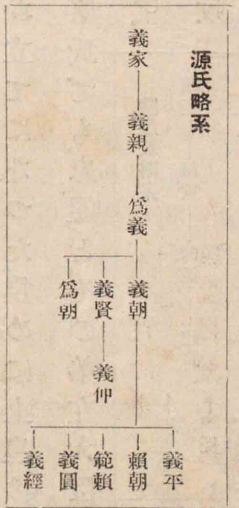 源氏略系
義家
義親
爲義
義朝
義賢
爲朝
義仲
義平
賴朝
範賴
義圓
義經